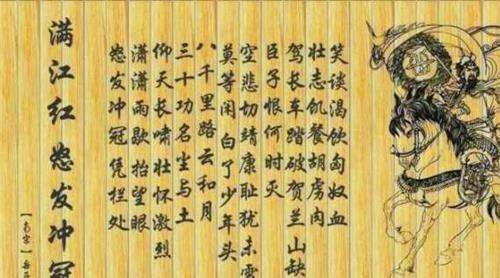 满江红 怒发冲冠
【南宋】岳
怒发冲冠凭栏处
潇潇雨歇抬望眼
仰天长啸壮怀激烈
三十功名尘与土
八千里路云和月
莫等闲白了少年头
空悲切靖康耻犹未雪
臣子恨何时灭
驾长车踏破贺兰山缺
壮志饥餐胡虏肉
笑谈渴饮匈奴血